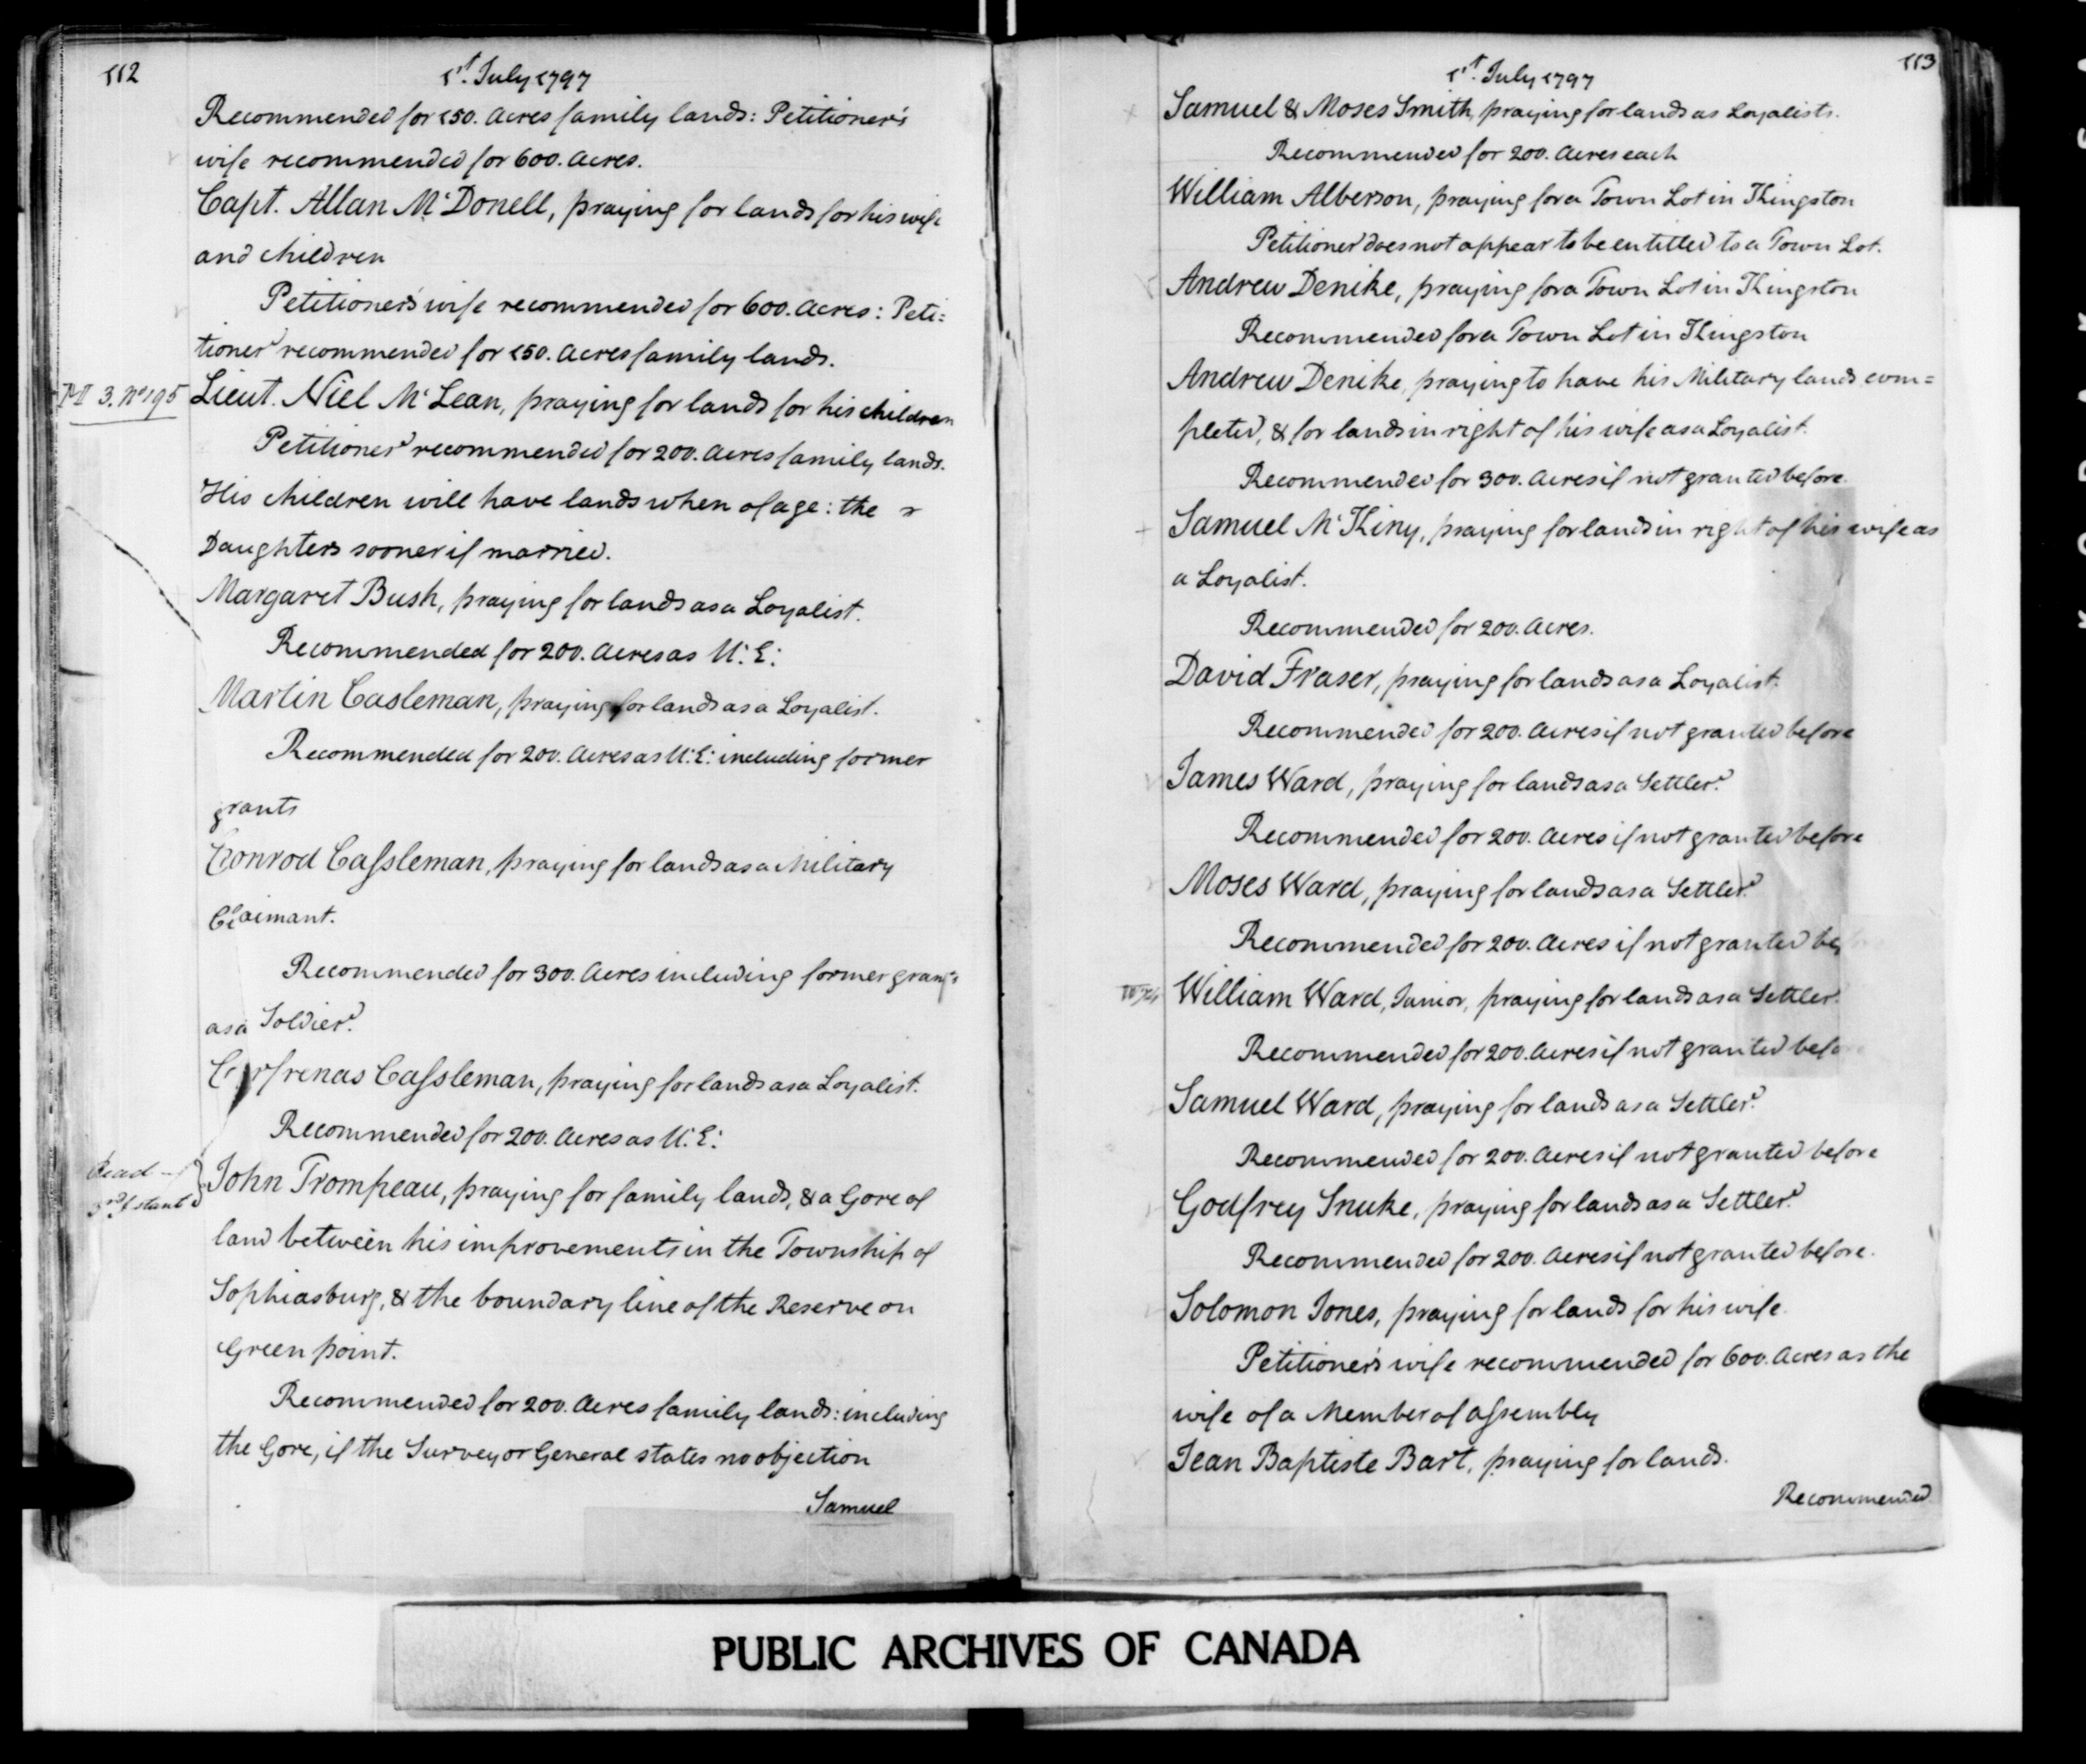 112
1st. July 1797
Recommended for 150. Acres family lands: Petitioner's
wife recommended for 600. Acres.
Capt. Allan McDonell, praying for lands for his wife
and children
Petitioner's wife recommended for 600. Acres: Peti=
tioner recommended for 150. Acres family lands.
M 3. No 195
Lieut. Niel McLean, praying for lands for his children
Petitioner recommended for 200. Acres family lands.
His children will have lands when of age: the
Daughters sooner if married.
Margaret Bush, praying for lands as a Loyalist.
Recommended for 200. Acres as U: E:
Martin Casleman, praying for lands as a Loyalist.
Recommended for 200. Acres as U: E: including former
grants
Conrod Cassleman, praying for lands as a Military
Claimant.
Recommended for 300. Acres including former grants
as a Soldier.
Cassleman, praying for lands as a Loyalist.
Recommended for 200. Acres as U: E:
Read
John Trompeau, praying for family lands, & a Gore of
land between his improvements in the Township of
Sophiasburg, & the boundary line of the Reserve on
Green point.
Recommended for 200. Acres family lands: including
the Gore, if the Surveyor General states no objection
Samuel
113
1st. July 1797
Samuel & Moses Smith, praying for lands as Loyalists.
Recommended for 200. Acres each
William Alberson, praying for a Town Lot in Kingston
Petitioner does not appear to be entitled to a Town Lot.
Andrew Denike, praying for a Town Lot in Kingston
Recommended for a Town Lot in Kingston
Andrew Denike, praying to have his Military lands com=
pleted, & for lands in right of his wife as a Loyalist.
Recommended for 300. Acres if not granted before.
Samuel McKiny, praying for lands in right of his wife as
a Loyalist.
Recommended for 200. Acres.
David Fraser, praying for lands as a Loyalist.
Recommended for 200. Acres if not granted before
James Ward, praying for lands as a Settler.
Recommended for 200. Acres if not granted before
Moses Ward, praying for lands as a Settler.
Recommended for 200. Acres if not granted bef
William Ward, Junior, praying for lands as a Settler.
Recommended for 200. Acres if not granted befo
Samuel Ward, praying for lands as a Settler.
Recommended for 200. Acres if not granted before
Godfrey Snuke, praying for lands as a Settler.
Recommended for 200. Acres if not granted before.
Solomon Jones, praying for lands for his wife.
Petitioner's wife recommended for 600. Acres as the
wife of a Member of Assembly
Jean Baptiste Bart, praying for lands.
Recommended
PUBLIC ARCHIVES OF CANADA